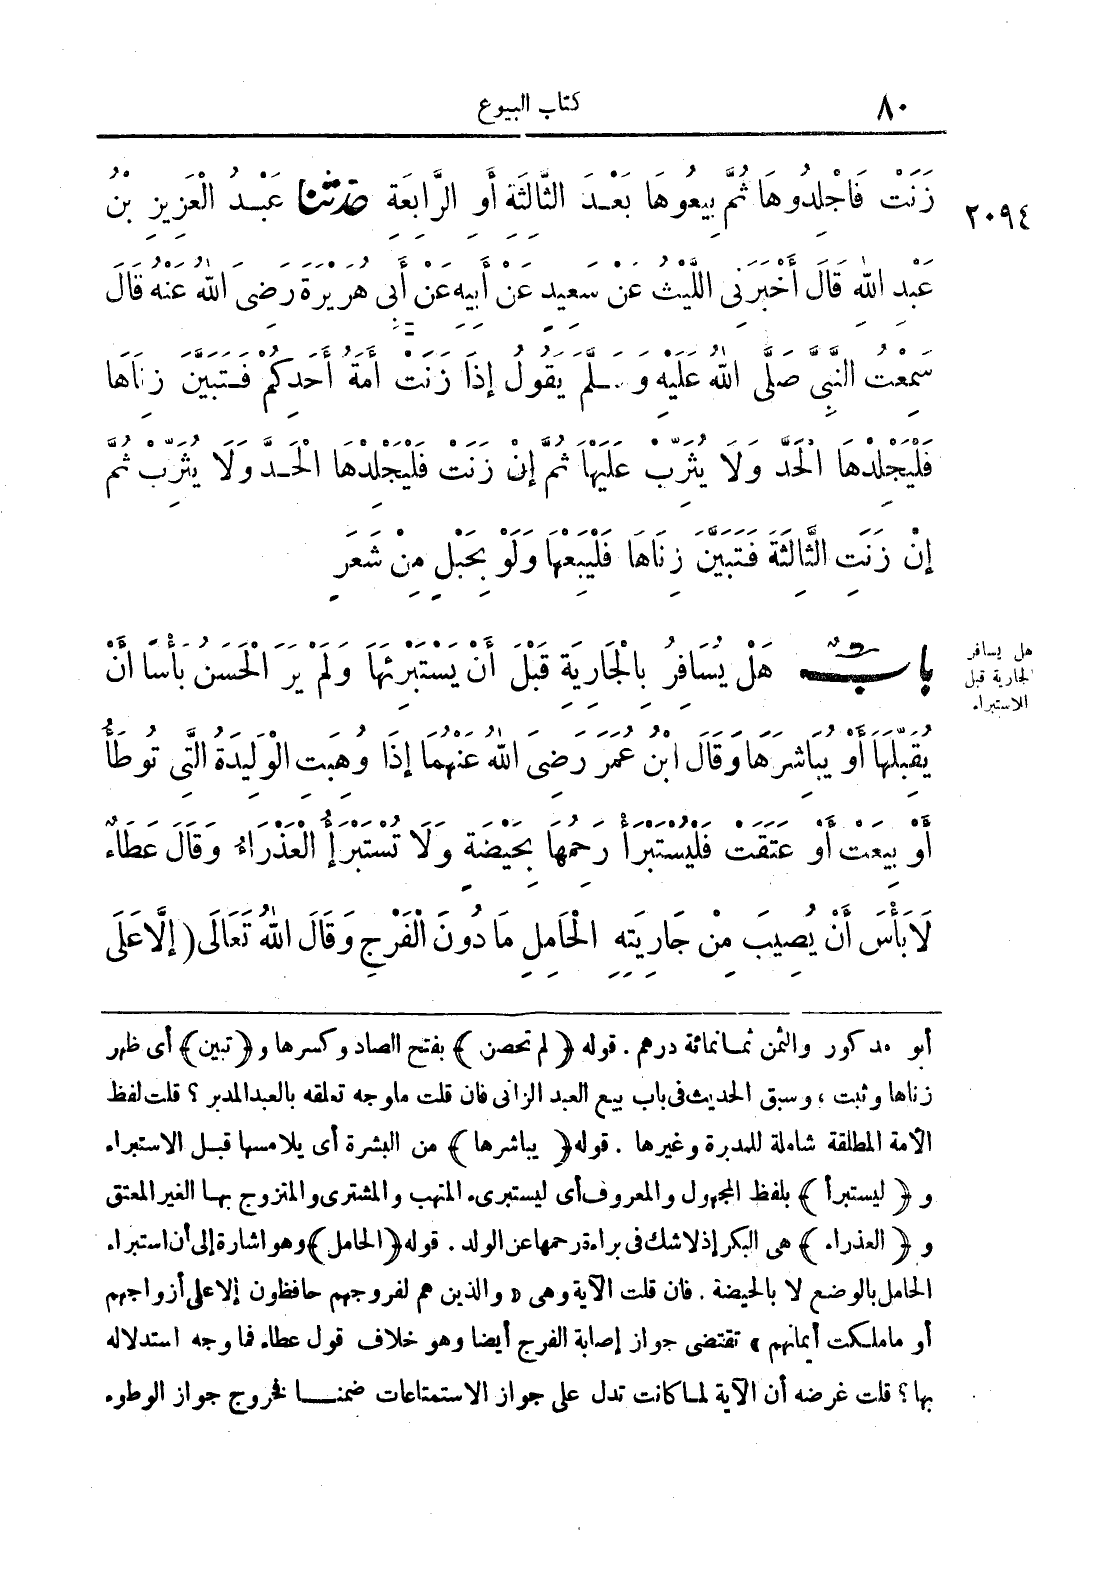 ٨٠
كتاب البيوع
زَنَتْ فَاجْلِدُوهَا ثُمَّ بِيعُوهَا بَعْدَ الثَّالِثَةِ أَوِ الرَّابِعَةِ حَدَّثَنَا عَبْدُ الْعَزِيزِ بْنُ
٢٠٩٤
عَبْدِ اللهِ قَالَ أَخْبَرَنِي اللَّيْثُ عَنْ سَعِيدٍ عَنْ أَبِيهِ عَنْ أَبِي هُرَيْرَةَ رَضِيَ اللهُ عَنْهُ قَالَ
سَمِعْتُ النَّبِيَّ صَلَّى اللهُ عَلَيْهِ وَسَلَّمَ يَقُولُ إِذَا زَنَتْ أَمَةُ أَحَدِكُمْ فَتَبَيَّنَ زِنَاهَا
فَلْيَجْلِدْهَا الْحَدَّ وَلَا يُثَرِّبْ عَلَيْهَا ثُمَّ إِنْ زَنَتْ فَلْيَجْلِدْهَا الْحَدَّ وَلَا يُثَرِّبْ ثُمَّ
إِنْ زَنَتِ الثَّالِثَةَ فَتَبَيَّنَ زِنَاهَا فَلْيَبِعْهَا وَلَوْ بِحَبْلٍ مِنْ شَعَرٍ
بابٌ هَلْ يُسَافِرُ بِالْجَارِيَةِ قَبْلَ أَنْ يَسْتَبْرِئَهَا وَلَمْ يَرَ الْحَسَنُ بَأْسًا أَنْ
هل يسافر
الجارية قبل
الاستبراء
يُقَبِّلَهَا أَوْ يُبَاشِرَهَا وَقَالَ ابْنُ عُمَرَ رَضِيَ اللهُ عَنْهُمَا إِذَا وُهِبَتِ الْوَلِيدَةُ الَّتِي تُوطَأُ
أَوْ بِيعَتْ أَوْ عَتَقَتْ فَلْيُسْتَبْرَأْ رَحِمُهَا بِحَيْضَةٍ وَلَا تُسْتَبْرَأُ الْعَذْرَاءُ وَقَالَ عَطَاءٌ
لَا بَأْسَ أَنْ يُصِيبَ مِنْ جَارِيَتِهِ الْحَامِلِ مَا دُونَ الْفَرْجِ وَقَالَ اللهُ تَعَالَى (إِلَّا عَلَى
أبو مذكور والثمن ثمانمائة درهم . قوله ﴿لم تحصن﴾ بفتح الصاد وكسرها و﴿تبين﴾ أى ظهر
زناها وثبت ، وسبق الحديث فى باب بيع العبد الزانى فان قلت ماوجه تعلقه بالعبد المدبر ؟ قلت لفظ
الأمة المطلقة شاملة للمدبرة وغيرها . قوله ﴿يباشرها﴾ من البشرة أى يلامسها قبل الاستبراء
و ﴿ليستبرأ﴾ بلفظ المجهول والمعروف أى ليستبرىء المتهب والمشترى والمتزوج بها الغير المعتق
و ﴿العذراء﴾ هى البكر إذ لاشك فى براءة رحمها عن الولد . قوله ﴿الحامل﴾ وهو اشارة إلى أن استبراء
الحامل بالوضع لا بالحيضة . فان قلت الآية وهى « والذين هم لفروجهم حافظون إلا على أزواجهم
أو ماملكت أيمانهم » تقتضى جواز إصابة الفرج أيضا وهو خلاف قول عطاء فما وجه استدلاله
بها ؟ قلت غرضه أن الآية لما كانت تدل على جواز الاستمتاعات ضمنا فخروج جواز الوطوء